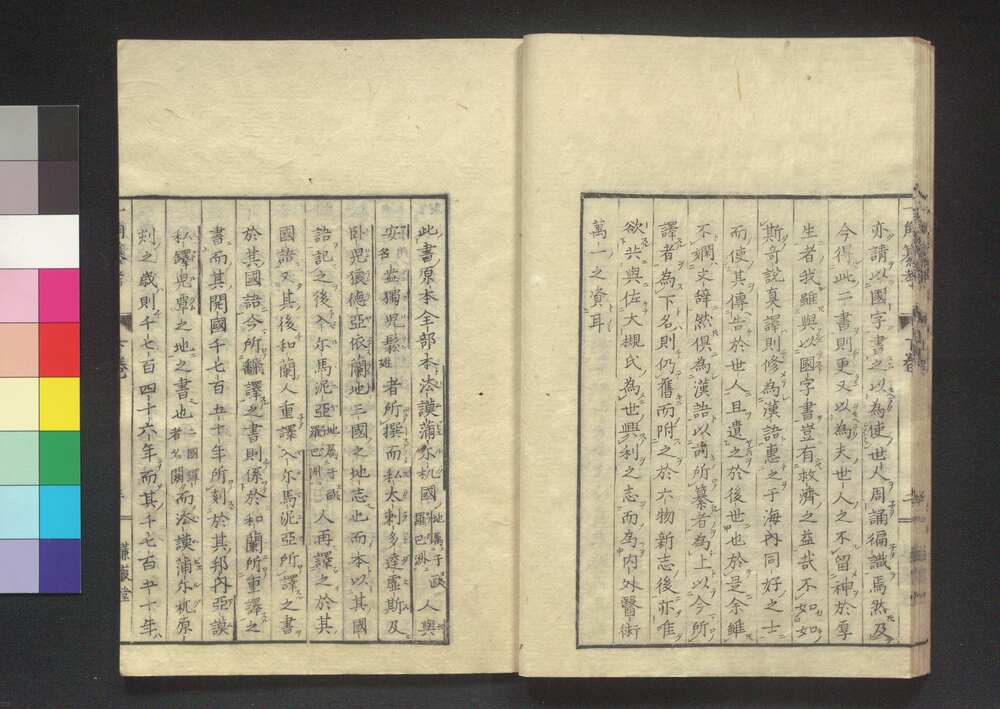 亦請以國字書之以為使世人周誦徧識焉然及
今得此二書則更又以為夫世人之不留神於厚
生者我雖與以國字書豈有救濟之益哉不如如
斯奇說真譯則修為漢語惠之于海內同好之士
而使其傳告於世人且遺之於後世也於是余雖
不嫻文辞然俱為漢語以前所纂者為上以今所
譯者為下名則仍舊而附之於六物新志後亦唯
欲共與佐大槻氏為世興利之志而為內外醫術
萬一之資耳
此書原本全部本泑謨蒲亦杋國地屬于歐羅巴洲人與
安名盎獨兒髢班者所撰而私太剌多達盧斯及
臥兒狼德亞依蘭地三國之地志也而本以其國
語記之後入尔馬泥亞地屬于歐羅巴洲人再譯之於其
國語又其後和蘭人重譯入尔馬泥亞所譯之書
於其國語今所翻譯之書則係於和蘭所重譯之
書而其開國千七百五十年所刻於其邦內亞謨
私鐸兒覃之地之書也二國譯者名闕而泑謨蒲尔杋原
刻之歲則千七百四十六年而其千七百五十年
蒹葭堂